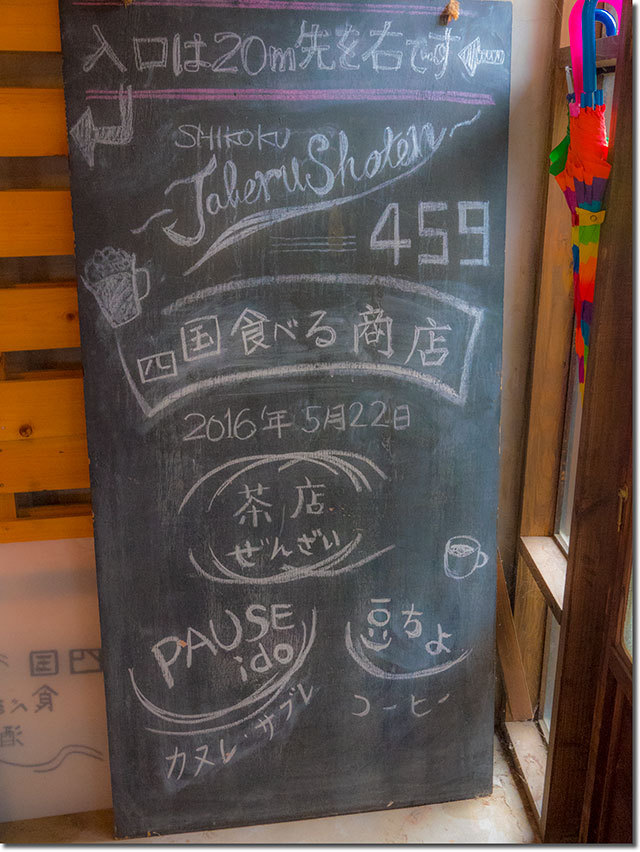 入口は20m先を右です
SHIKOKU
Taberu Shoten
459
四国食べる商店
2016年5月22日
茶店
ぜんざい
PAUSE
ido
カヌレ・サブレ
豆ちよ
コーヒー
四国
食べる
酒